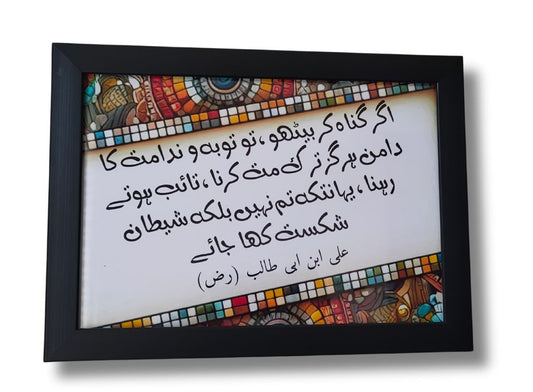 اگر گناہ کر بیٹھو، تو توبہ و ندامت کا
دامن ہرگز ترک مت کرنا، تائب ہوتے
رہنا، یہانتکہ تم نہیں بلکہ شیطان
شکست کھا جائے
علی ابن ابی طالب (رض)